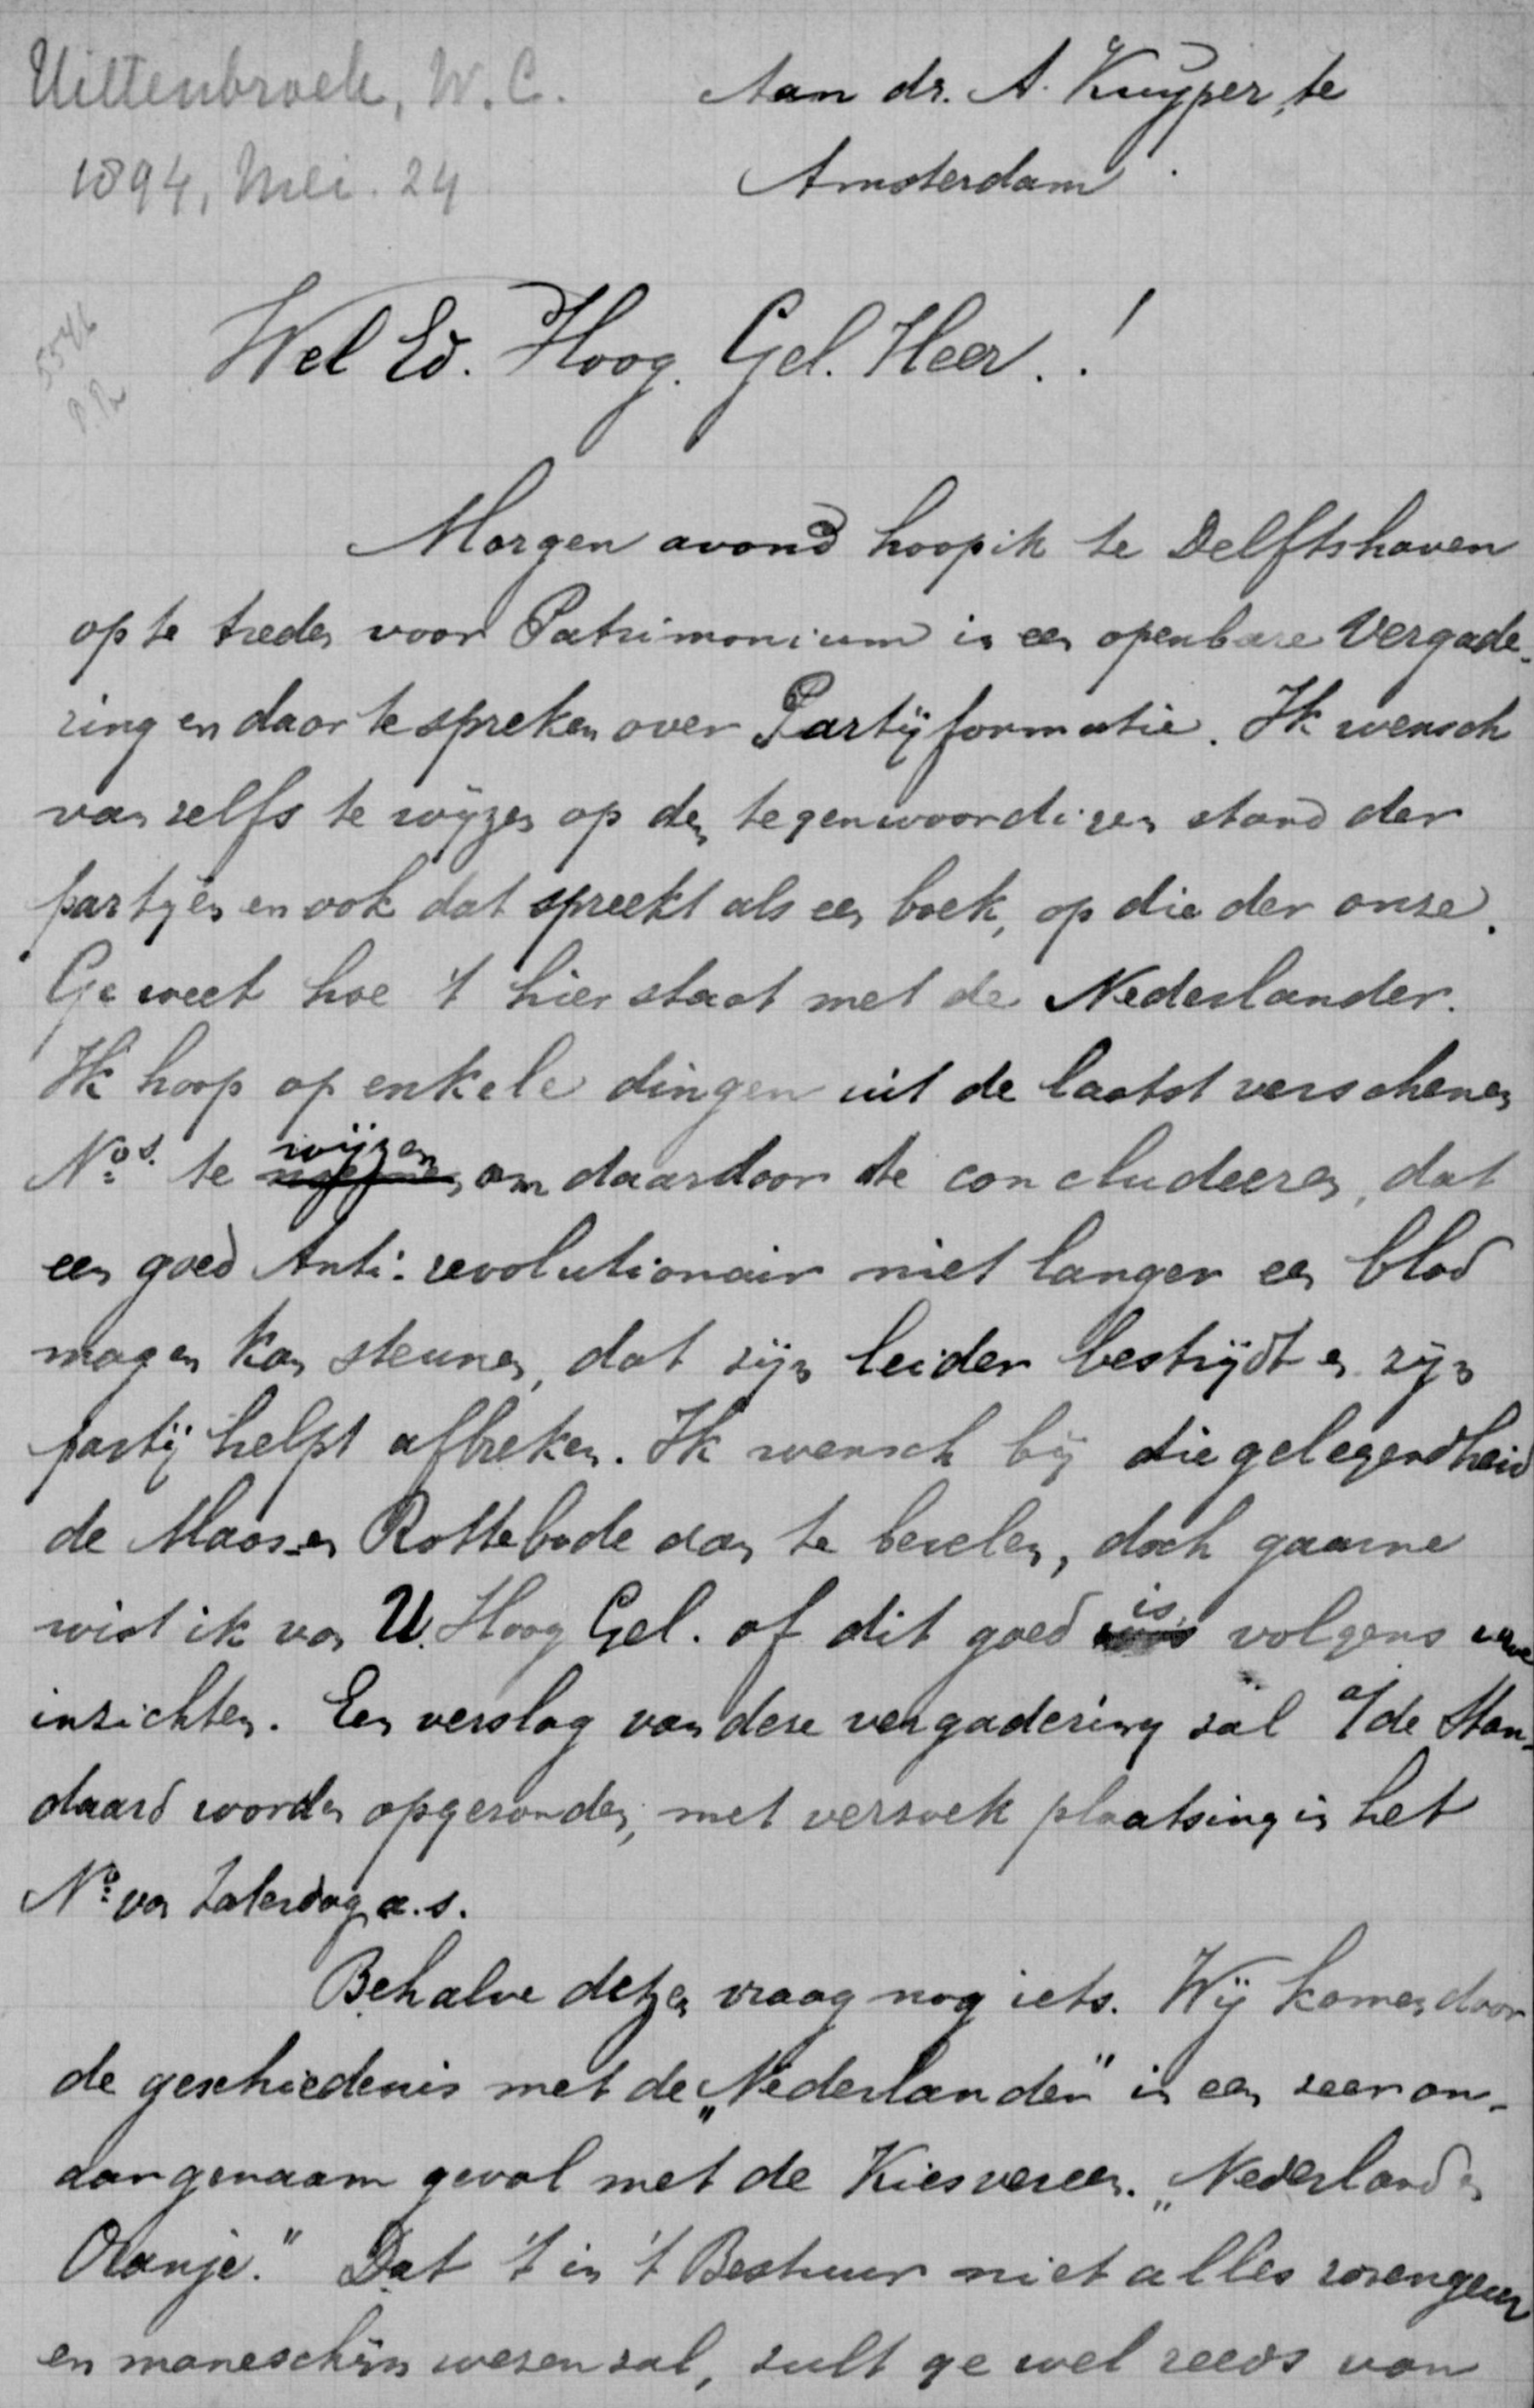 Uittenbroek, W. C.
1894, Mei. 24
Aan dr. A. Kuyper, te
Amsterdam.
5546
Wel Ed. Hoog. Gel. Heer.!
Morgen avond hoop ik te Delftshaven
op te treden voor Patrimonium in een openbare Vergade-
ring en daar te spreken over Partijformatie. Ik wensch
van zelfs te wijzen op den tegenwoordigen stand der
partijen en ook dat spreekt als een boek, op die der onze.
Ge weet hoe 't hier staat met de Nederlander.
Ik hoop op enkele dingen uit de laatst verschenen
Nos. te wijzen om daardoor te concludeeren, dat
een goed Anti-revolutionair niet langer een blad
mag en kan steunen, dat zijn leider bestrijdt en zijn
partij helpt afbreken. Ik wensch bij die gelegendheid
de Maas- en Rottebode aan te bevelen, doch gaarne
wist ik van U. Hoog Gel. of dit goed is volgens uwe
inzichten. Een verslag van deze vergadering zal a/de Stan-
daard worden opgezonden, met verzoek plaatsing in het
No. van Zaterdag a.s.
Behalve dezen vraag nog iets. Wij komen door
de geschiedenis met de „Nederlander" in een zeer on-
aangenaam geval met de Kiesvereen. „Nederland en
Oranje." Dat 't in 't Bestuur niet alles rozengeur
en maneschijn wezen zal, zult ge wel reeds van